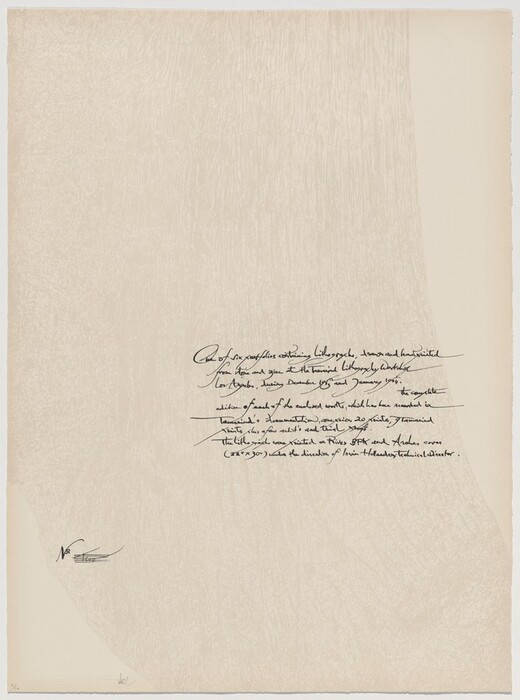 One of six portfolios containing lithographs, drawn and handprinted
from stone and zinc at the Tamarind Lithography Workshop
Los Angeles, during December 1963 and January 1964.
the complete
edition of each of the enclosed works, which has been recorded in
Tamarind's documentation, comprises 20 prints, 9 Tamarind
prints, plus a few artist's and trial proofs
The lithographs were printed on Rives BFK and Arches cover
(22" x 30") under the direction of Irwin Hollander, technical director.
Nº